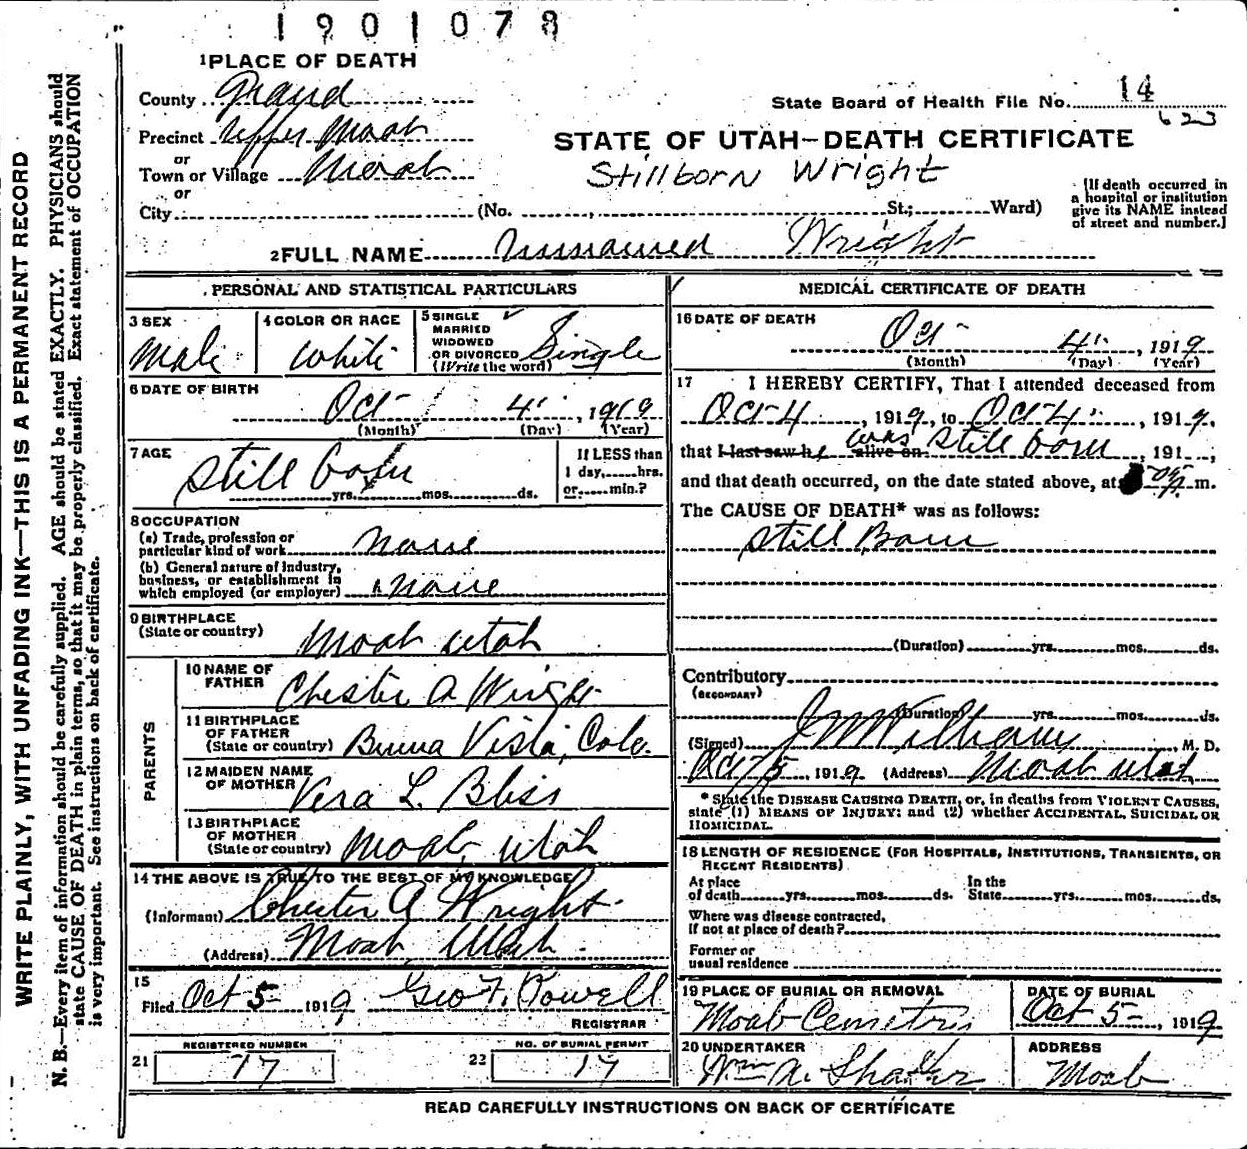 1901078
1 PLACE OF DEATH
County Grand
State Board of Health File No. 14
623
Precinct Upper Moab
or
Town or Village Moab
or
STATE OF UTAH—DEATH CERTIFICATE
Stillborn Wright
City (No. , St.; Ward)
[If death occurred in
a hospital or institution
give its NAME instead
of street and number.]
2 FULL NAME Unnamed Wright
PERSONAL AND STATISTICAL PARTICULARS
3 SEX
Male
4 COLOR OR RACE
White
5 SINGLE
MARRIED
WIDOWED
OR DIVORCED
(Write the word)
Single
6 DATE OF BIRTH
Oct 4, 1919
(Month) (Day) (Year)
7 AGE
Still born
yrs. mos. ds.
If LESS than
1 day, hrs.
or min.?
8 OCCUPATION
(a) Trade, profession or
particular kind of work none
(b) General nature of Industry,
business, or establishment in
which employed (or employer) none
9 BIRTHPLACE
(State or country) Moab Utah
PARENTS
10 NAME OF
FATHER Chester A Wright
11 BIRTHPLACE
OF FATHER
(State or country) Buena Vista, Colo.
12 MAIDEN NAME
OF MOTHER Vera L. Bliss
13 BIRTHPLACE
OF MOTHER
(State or country) Moab, Utah
14 THE ABOVE IS TRUE TO THE BEST OF MY KNOWLEDGE
(Informant) Chester A Wright
(Address) Moab, Utah
15
Filed Oct 5 1919 Geo F. Powell
REGISTRAR
REGISTERED NUMBER
21 17
NO. OF BURIAL PERMIT
22 17
MEDICAL CERTIFICATE OF DEATH
16 DATE OF DEATH
Oct 4, 1919
(Month) (Day) (Year)
17 I HEREBY CERTIFY, That I attended deceased from
Oct 4, 1919, to Oct 4, 1919,
that I last saw h alive on was still born, 191 ,
and that death occurred, on the date stated above, at m.
The CAUSE OF DEATH* was as follows:
Still Born
(Duration) yrs. mos. ds.
Contributory
(SECONDARY)
(Duration) yrs. mos. ds.
(Signed) J W Williams, M. D.
Oct 5, 1919 (Address) Moab Utah
* State the DISEASE CAUSING DEATH, or, in deaths from VIOLENT CAUSES,
state (1) MEANS OF INJURY; and (2) whether ACCIDENTAL, SUICIDAL OR
HOMICIDAL.
18 LENGTH OF RESIDENCE (FOR HOSPITALS, INSTITUTIONS, TRANSIENTS, OR
RECENT RESIDENTS)
At place
of death yrs. mos. ds.
In the
State yrs. mos. ds.
Where was disease contracted,
If not at place of death?
Former or
usual residence
19 PLACE OF BURIAL OR REMOVAL
Moab Cemetery
DATE OF BURIAL
Oct 5, 1919
20 UNDERTAKER
Wm A. Shafer
ADDRESS
Moab
READ CAREFULLY INSTRUCTIONS ON BACK OF CERTIFICATE
WRITE PLAINLY, WITH UNFADING INK—THIS IS A PERMANENT RECORD
N. B.—Every item of information should be carefully supplied. AGE should be stated EXACTLY. PHYSICIANS should
state CAUSE OF DEATH in plain terms, so that it may be properly classified. Exact statement of OCCUPATION
is very important. See instructions on back of certificate.